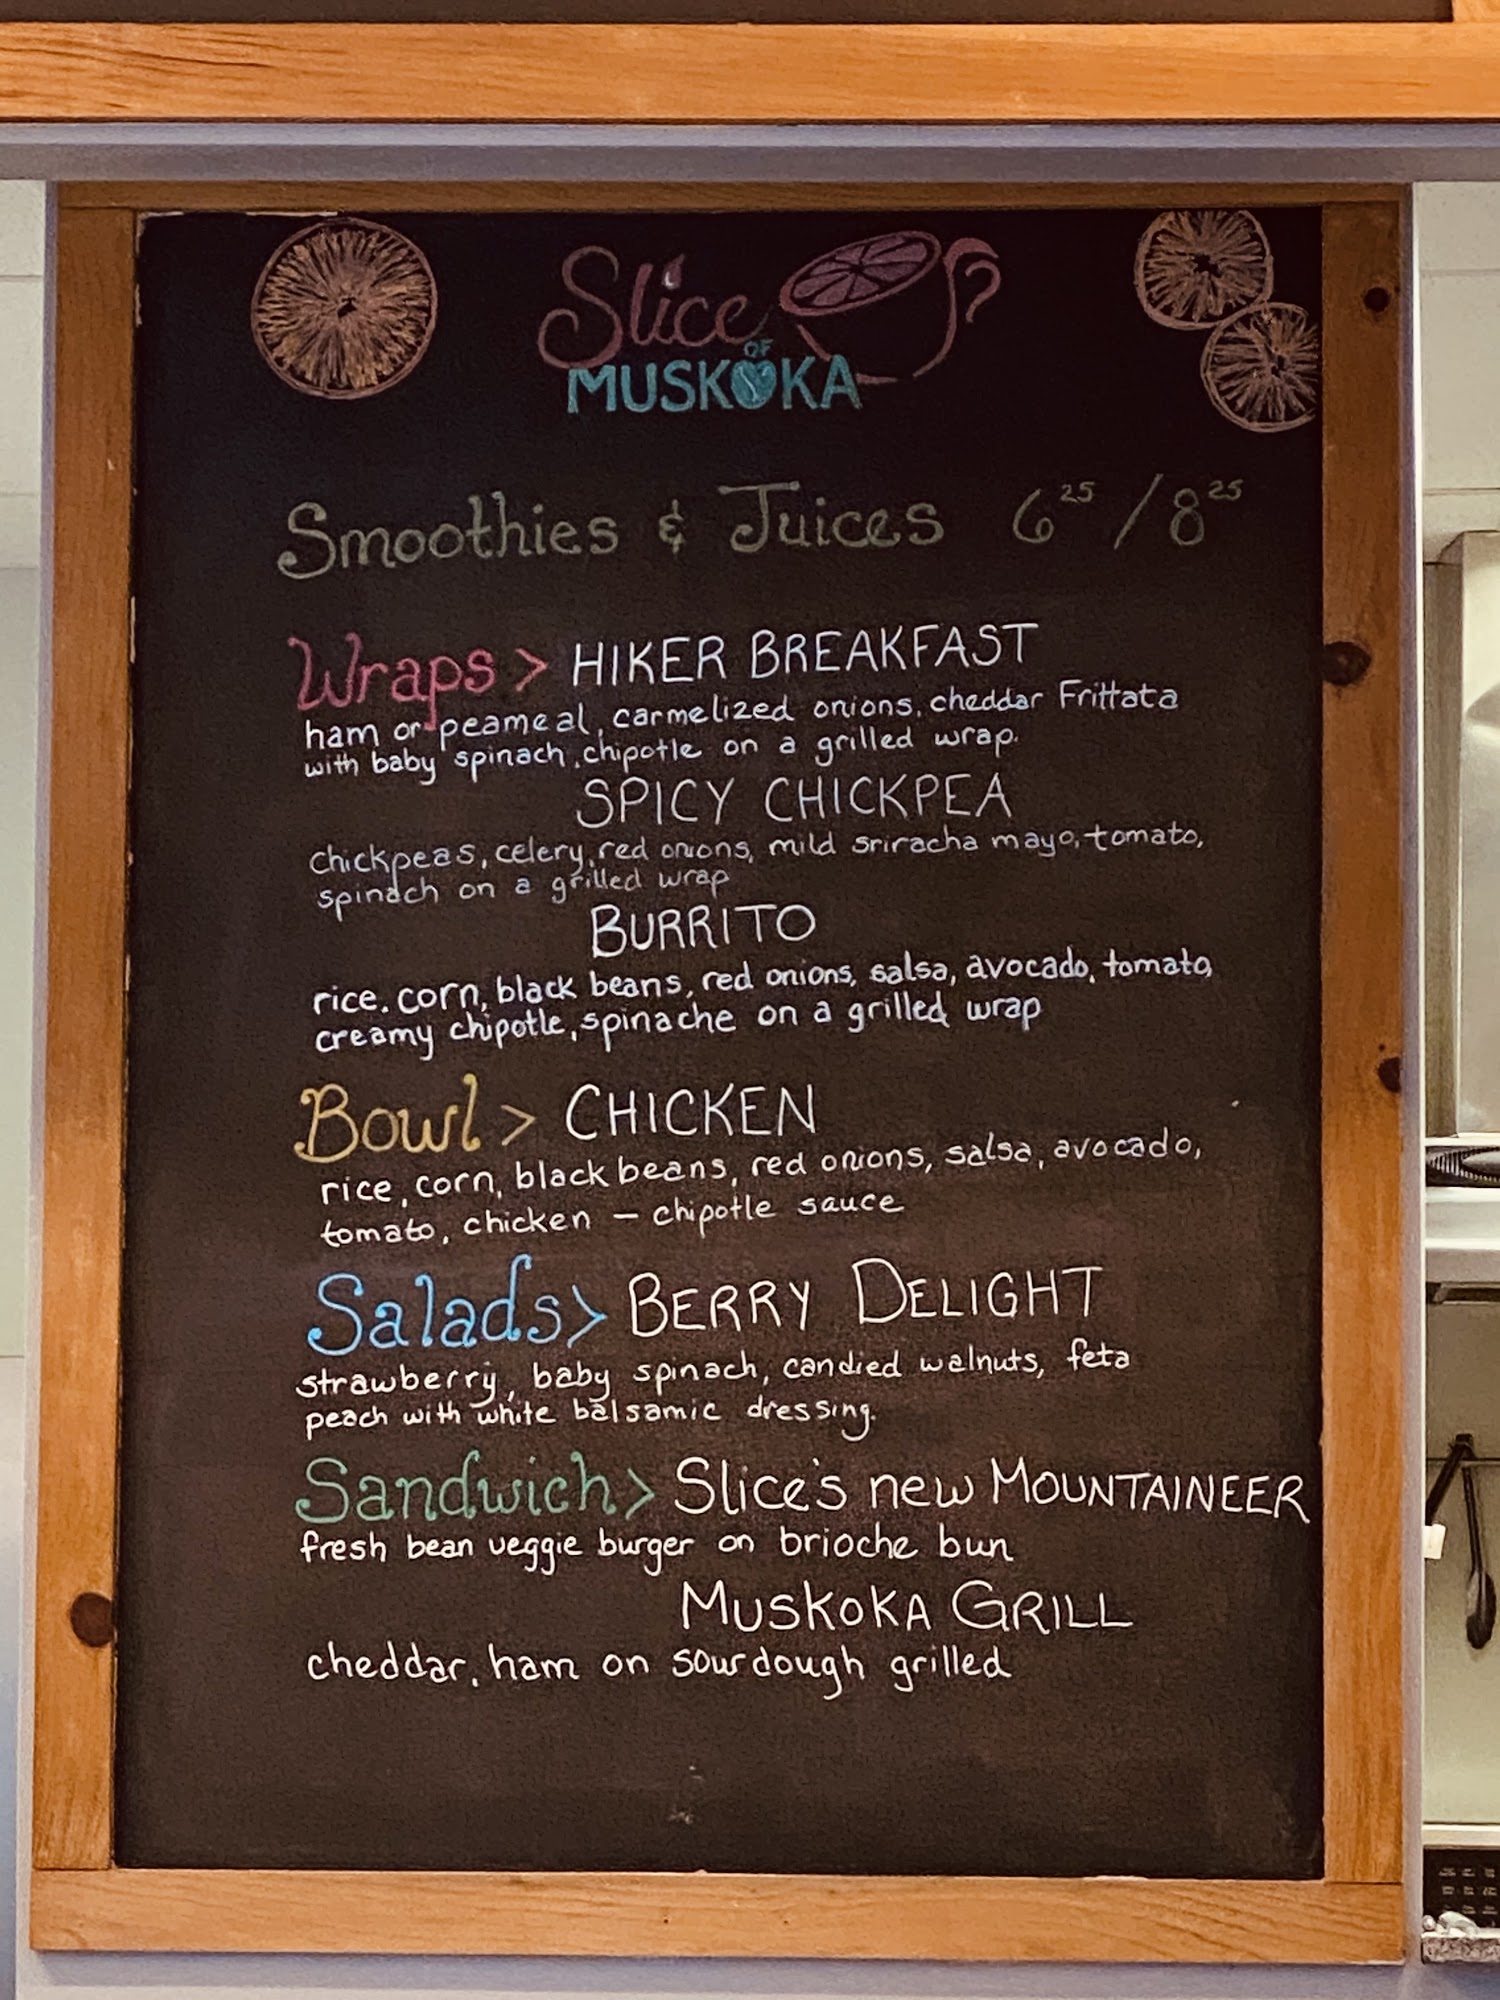 Slice
OF
MUSKOKA
Smoothies & Juices 6²⁵ / 8²⁵
Wraps > HIKER BREAKFAST
ham or peameal, carmelized onions, cheddar Frittata
with baby spinach, chipotle on a grilled wrap.
SPICY CHICKPEA
chickpeas, celery, red onions, mild sriracha mayo, tomato,
spinach on a grilled wrap
BURRITO
rice, corn, black beans, red onions, salsa, avocado, tomato,
creamy chipotle, spinache on a grilled wrap
Bowl > CHICKEN
rice, corn, black beans, red onions, salsa, avocado,
tomato, chicken – chipotle sauce
Salads > BERRY DELIGHT
strawberry, baby spinach, candied walnuts, feta
peach with white balsamic dressing.
Sandwich > Slice's new MOUNTAINEER
fresh bean veggie burger on brioche bun
MUSKOKA GRILL
cheddar, ham on sourdough grilled